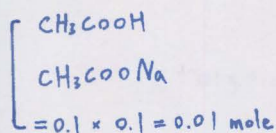 CH3COOH
CH3COONa
= 0.1 × 0.1 = 0.01 mole